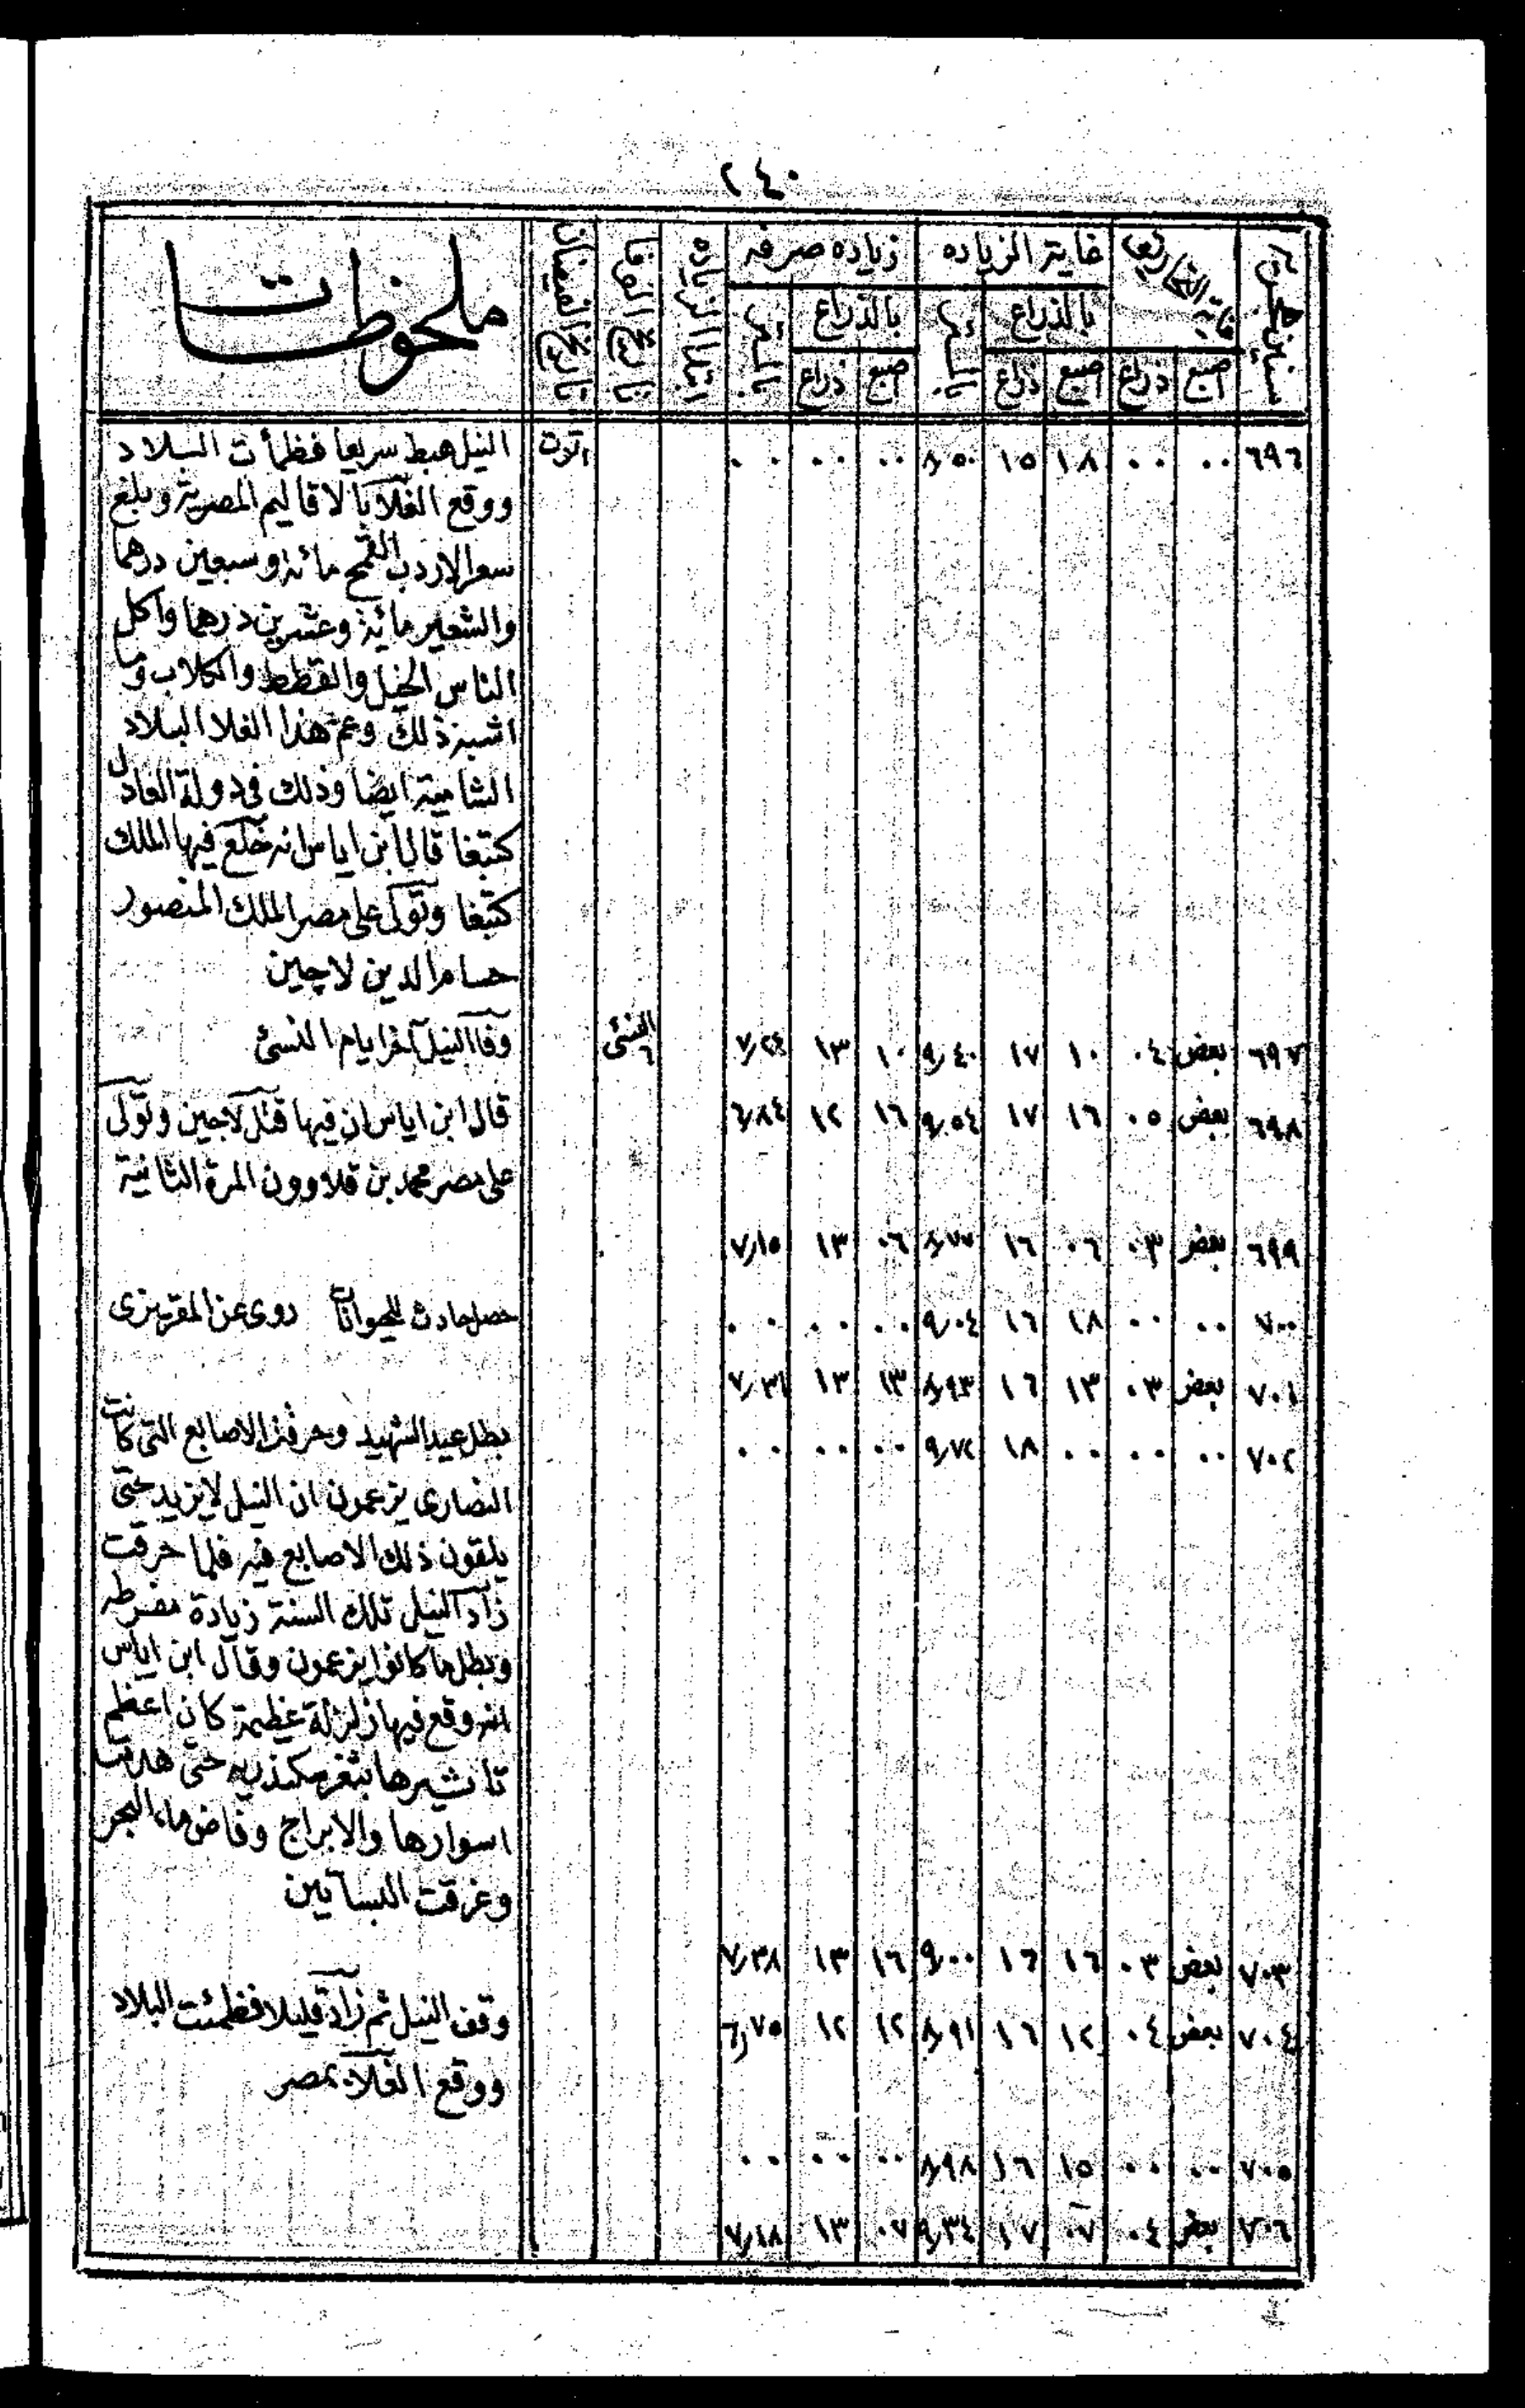 ٢٤٠
سنين هجرية | غاية التحاريق | غاية الزياده | زياده صرفه | ابتدا الزياده | تاريخ الوفا | تاريخ الفيضان | ملحوظات
بالذراع | بالمتر | بالذراع | بالمتر
اصبع | ذراع | اصبع | ذراع | اصبع | ذراع
٦٩٦ | ٠٠ | ٠٠ | ١٨ | ١٥ | ٨٫٥٠ | ٠٠ | ٠٠ | ٠٠ | توت | النيل هبط سريعا فظمأت البلاد
ووقع الغلآ بالاقاليم المصرية وبلغ
سعر الاردب القمح مائة وسبعين درهما
والشعير مائة وعشرين درهما واكل
الناس الخيل والقطط والكلاب وما
اشبه ذلك وعم هذا الغلا البلاد
الشامية ايضا وذلك فى دولة العادل
كتبغا قال ابن اياس انه خلع فيها الملك
كتبغا وتولى على مصر الملك المنصور
حسام الدين لاچين
٦٩٧ | بعض | ٠٤ | ١٠ | ١٧ | ٩٫٤٠ | ١٠ | ١٣ | ٧٫٢٤ | النسئ ٦ | وفا النيل آخر ايام النسئ
٦٩٨ | بعض | ٠٥ | ١٦ | ١٧ | ٩٫٥٤ | ١٦ | ١٢ | ٦٫٨٤ | قال ابن اياس ان فيها قتل لاجين وتولى
على مصر محمد بن قلاوون المرة الثانية
٦٩٩ | بعض | ٠٣ | ٠٦ | ١٦ | ٨٫٧٧ | ٠٦ | ١٣ | ٧٫١٥
٧٠٠ | ٠٠ | ٠٠ | ١٨ | ١٦ | ٩٫٠٤ | ٠٠ | ٠٠ | ٠٠ | حصل حادث للحيوانات روى عن المقريزى
٧٠١ | بعض | ٠٣ | ١٣ | ١٦ | ٨٫٩٣ | ١٣ | ١٣ | ٧٫٣١
٧٠٢ | ٠٠ | ٠٠ | ٠٠ | ١٨ | ٩٫٧٢ | ٠٠ | ٠٠ | ٠٠ | بطل عيد الشهيد وحرقت الاصابع التى كانت
النصارى يزعمون ان النيل لايزيد حتى
يلقون ذلك الاصابع فيه فلما حرقت
زاد النيل تلك السنة زيادة مفرطه
وبطل ما كانوا يزعمون وقال ابن اياس
انه وقع فيها زلزلة عظيمة كان اعظم
تاثيرها بثغر سكندريه حتى هدمت
اسوارها والابراج وفاض ماء البحر
وغرقت البساتين
٧٠٣ | بعض | ٠٣ | ١٦ | ١٦ | ٩٫٠٠ | ١٦ | ١٣ | ٧٫٣٨
٧٠٤ | بعض | ٠٤ | ١٢ | ١٦ | ٨٫٩١ | ١٢ | ١٢ | ٦٫٧٥ | وقف النيل ثم زاد قليلا فظمئت البلاد
ووقع الغلآ بمصر
٧٠٥ | ٠٠ | ٠٠ | ١٥ | ١٦ | ٨٫٩٨ | ٠٠ | ٠٠ | ٠٠
٧٠٦ | بعض | ٠٤ | ٠٧ | ١٧ | ٩٫٣٤ | ٠٧ | ١٣ | ٧٫١٨